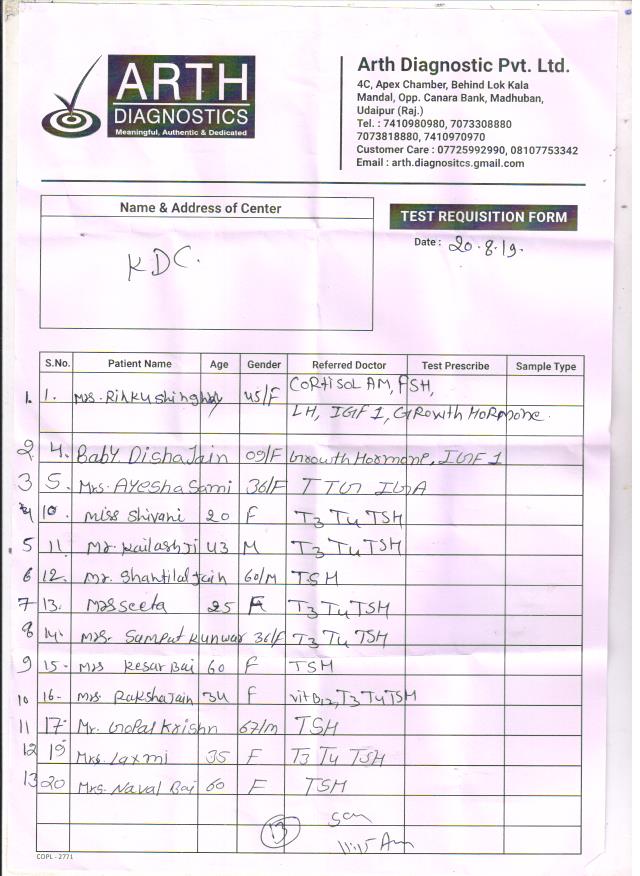 ARTH
DIAGNOSTICS
Meaningful, Authentic & Dedicated
Arth Diagnostic Pvt. Ltd.
4C, Apex Chamber, Behind Lok Kala
Mandal, Opp. Canara Bank, Madhuban,
Udaipur (Raj.)
Tel. : 7410980980, 7073308880
7073818880, 7410970970
Customer Care : 07725992990, 08107753342
Email : arth.diagnositcs.gmail.com
Name & Address of Center
KDC.
TEST REQUISITION FORM
Date : 20.8.19.
S.No. Patient Name Age Gender Referred Doctor Test Prescribe Sample Type
1. 1. Mrs. Rinku 45/F Cortisol AM, FSH,
LH, IGF 1, Growth Hormone.
2. 4. Baby Disha Jain 09/F Growth Hormone, IGF 1
3 5. Mrs. Ayesha Sami 36/F TTG IGA
4 10. Miss Shivani 20 F T3 T4 TSH
5 11. Mr. Kailash Ji 43 M T3 T4 TSH
6 12. Mr. Shantilal Jain 60/M TSH
7 13. Mrs Seeta 25 F T3 T4 TSH
8 14. Mrs. Samput Kunwar 36/F T3 T4 TSH
9 15- Mrs Kesar Bai 60 F TSH
10 16- Mrs. Raksha Jain 34 F Vit B12, T3 T4 TSH
11 17. Mr. Gopal Krishn 67/M TSH
12 19 Mrs. Laxmi 35 F T3 T4 TSH
13 20 Mrs. Naval Bai 60 F TSH
13
11:15 Am
COPL - 2771